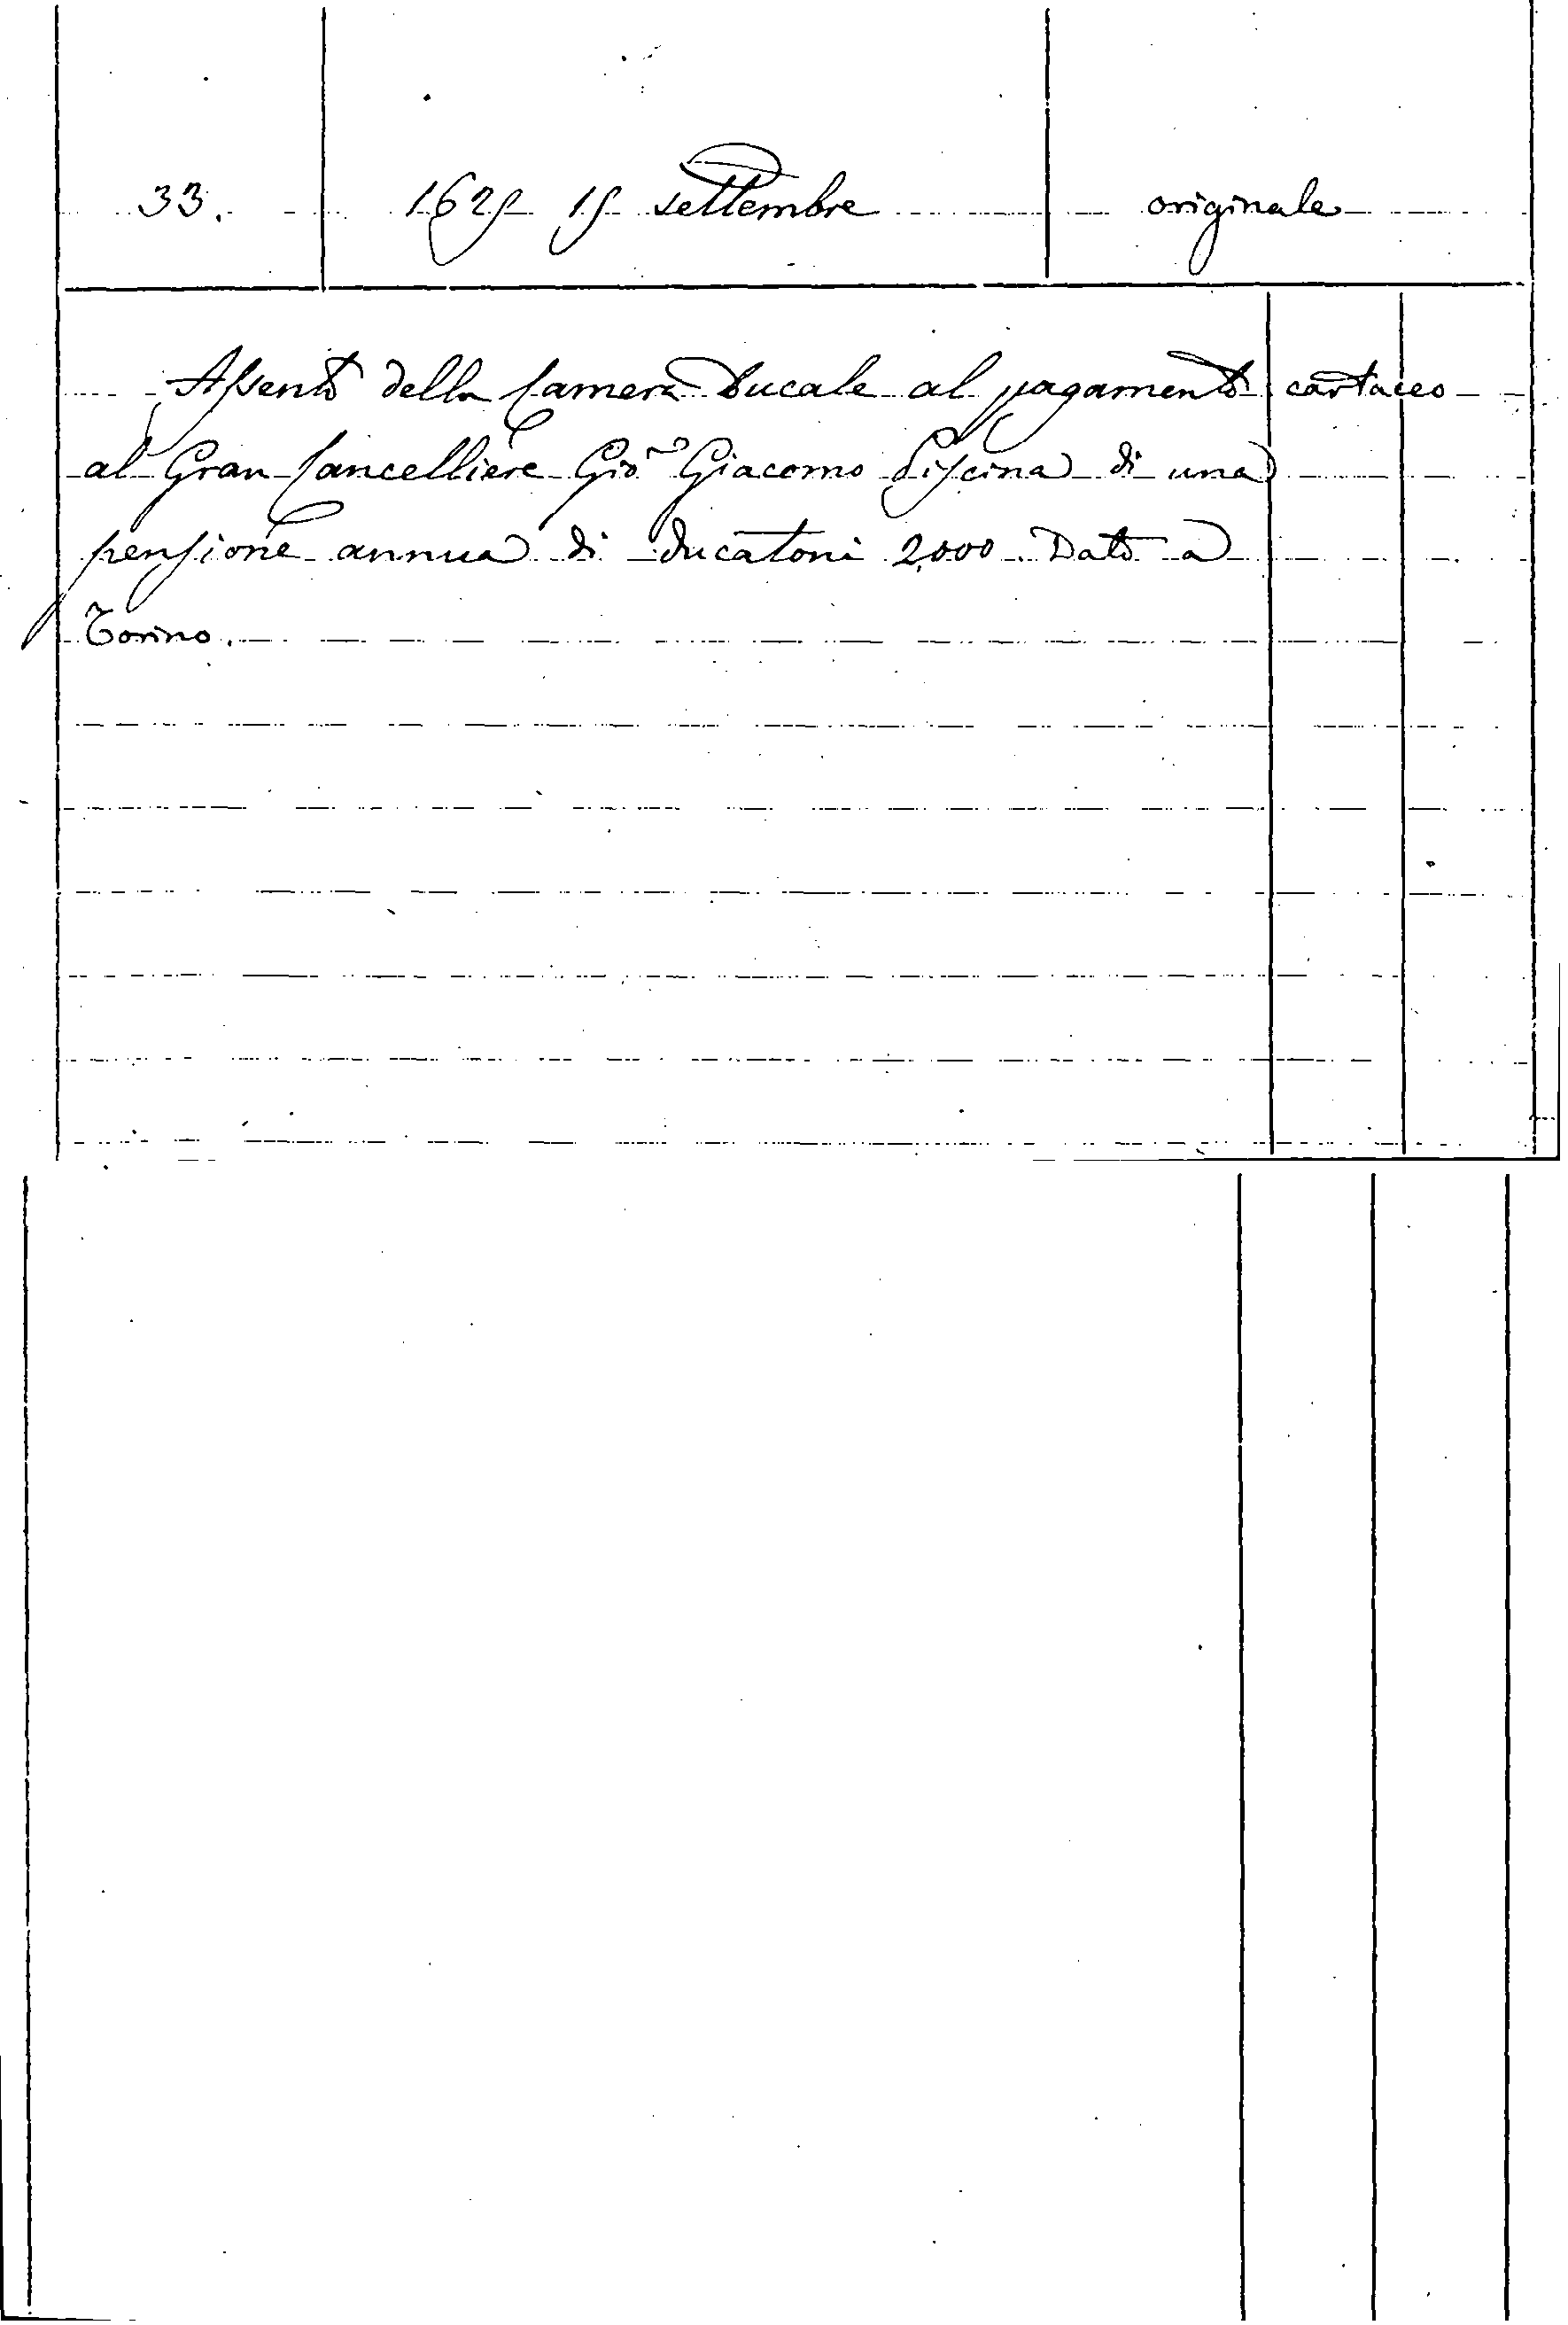 33. 1625 15 settembre originale
Assento della Camera Ducale al pagamento cartaceo
al Gran Cancelliere Gio Giacomo Piscina di una
pensione annua di ducatoni 2000. Dato a
Torino.